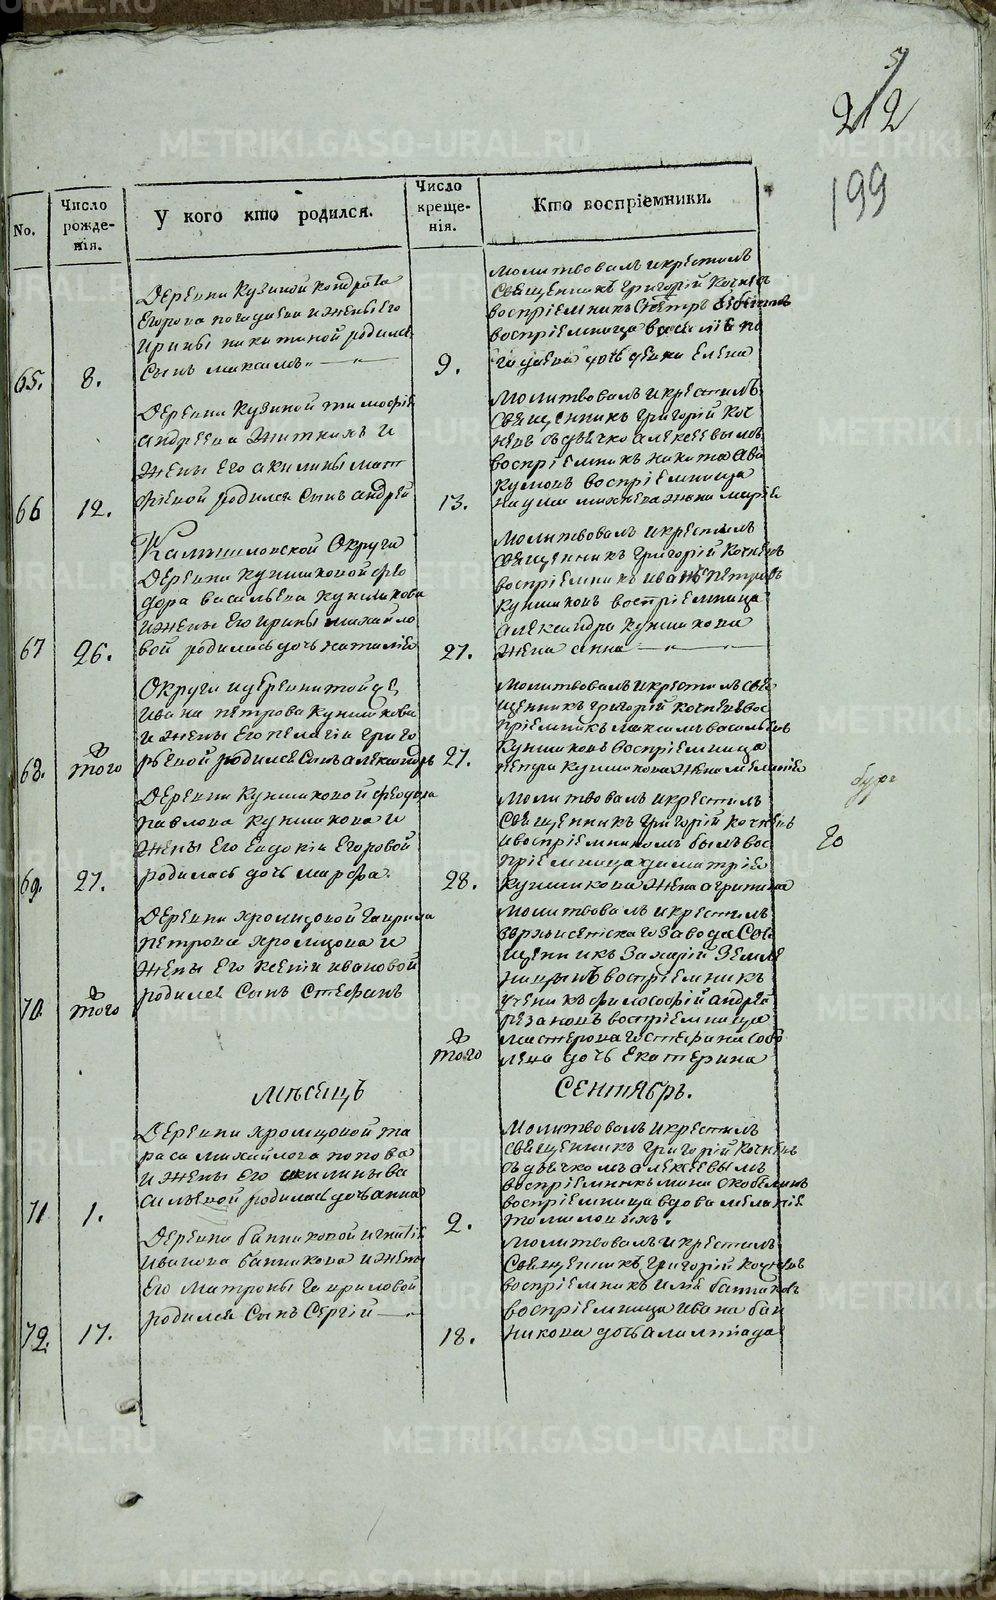 5
212
199
No.
Число рожде-нія.
У кого кто родился.
Число креще-нія.
Кто воспріемники.
65.
8.
Деревни Кузиной Кондрата
Егорова и жены его
Ирины Никитиной родился
Сынъ Максимъ
9.
Молитвовалъ и крестилъ
Священникъ Григорій Кочневъ
воспріемникъ
воспріемница
дочь девка Елена
66
12.
Деревни Кузиной Тимофѣя
Андреева Житкихъ и
Жены Его Акилины Мат
ѳѣевой родился Сынъ Андрей
13.
Молитвовалъ и крестилъ
Священникъ Григорій Коч
невъ съ дьячко Алексеевымъ
воспріемникъ Никита Ава
кумовъ воспріемница
Наума жена Марія
67
26.
Камышловской Округи
Деревни Куншиковой Фео
дора Васильева Куншикова
и жены Его Ирины Михайло
вой родилась дочь Наталія
27.
Молитвовалъ и крестилъ
священникъ Григорій Кочневъ
воспріемникъ Иванъ Петровъ
Куншиковъ воспріемница
Александра Куншикова
жена Анна
68.
того
Округи и деревни той де
Ивана Петрова Куншикова
и жены Его Пелагіи Григо
рьевой родился Сынъ Александръ
27.
Молитвовалъ и крестилъ свя
щенникъ Григорій Кочневъ вос
пріемникъ Максимъ Васильевъ
Куншиковъ воспріемница
Петра Куншикова жена Меланія
69.
27.
Деревни Куншиковой Феодора
Павлова Куншикова и
Жены Его Евдокіи Егоровой
родилась дочь Марфа.
28.
Молитвовалъ и крестилъ
Священникъ Григорій Кочневъ
и воспріемникомъ былъ вос
пріемница Димитрія
Куншикова жена Агрипина
70.
того
Деревни Хромцовой Гаврила
Петрова Хромцова и
Жены Его Ксеніи Ивановой
родился Сынъ Стефанъ
того
Молитвовалъ и крестилъ
Верхъисетскаго Завода Свя
щенникъ Захарій Земля
ницынъ воспріемникъ
ученикъ философіи Андрей
Рязановъ воспріемница
мастерова Стефана Собо
лева дочь Екатерина
Мѣсяцъ
Сентябрь.
71
1.
Деревни Хромцовой Та
раса Михайлова Попова
и жены Его Акилины Ва
сильевой родилась дочь Анна
2.
Молитвовалъ и крестилъ
священникъ Григорій Кочневъ
съ дьячкомъ Алексеевымъ
воспріемникъ Мина Скобелинъ
воспріемница вдова Меланія
Томиловыхъ.
72.
17.
Деревни Банниковой Игнатія
Иванова Банникова и жены
Его Матроны Гавриловой
родился Сынъ Сергій
18.
Молитвовалъ и крестилъ
Священникъ Григорій Кочневъ
воспріемникъ Илья Банниковъ
воспріемница Ивана Бан
никова дочь Алимпіада
METRIKI.GASO-URAL.RU